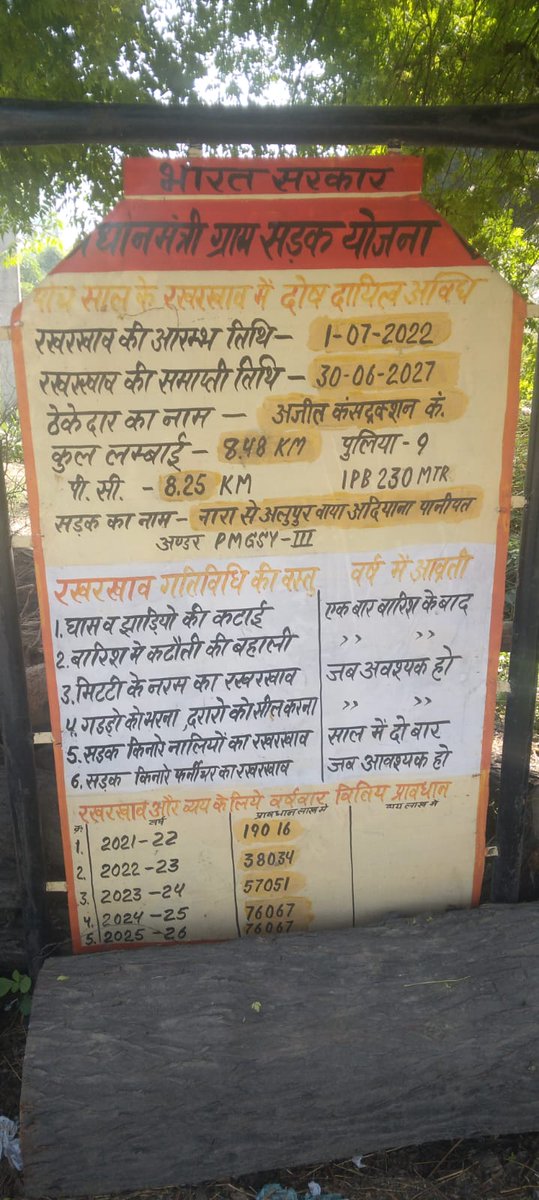 भारत सरकार
प्रधानमंत्री ग्राम सड़क योजना
पांच साल के रखरखाव में दोष दायित्व अवधि
रखरखाव की आरम्भ तिथि - 1-07-2022
रखरखाव की समाप्ती तिथि - 30-06-2027
ठेकेदार का नाम - अजीत कंसट्रक्शन कं.
कुल लम्बाई - 8.48 KM पुलिया - 9
पी. सी. - 8.25 KM IPB 230 MTR
सड़क का नाम - नारा से अलुपुर वाया अदियाना पानीपत
अण्डर PMGSY-III
रखरखाव गतिविधि की वस्तु वर्ष में आव्रती
1. घास व झाड़ियो की कटाई एक बार बारिश के बाद
2. बारिश मे कटौती की बहाली ,, ,,
3. मिटटी के नरम का रखरखाव जब अवश्यक हो
4. गड्डो को भरना, दरारो को सील करना ,, ,,
5. सड़क किनारे नालियों का रखरखाव साल में दो बार
6. सड़क किनारे फर्नीचर का रखरखाव जब आवश्यक हो
रखरखाव और व्यय के लिये वर्षवार वित्तिय प्रावधान
क्र. वर्ष प्रावधान लाख मे व्यय लाख मे
1. 2021-22 19016
2. 2022-23 38034
3. 2023-24 57051
4. 2024-25 76067
5. 2025-26 76067